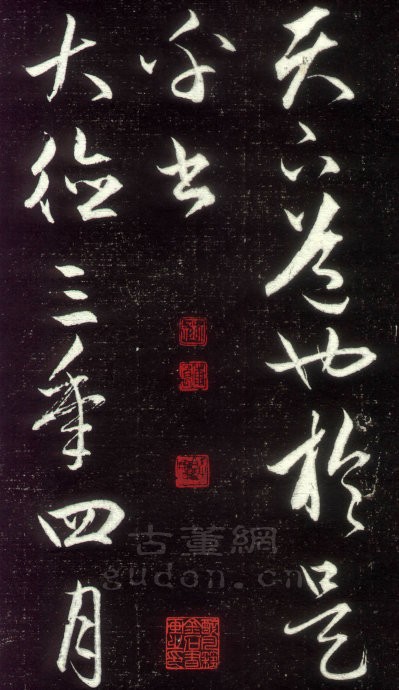 天下道也於是
乎書
大德三年四月
古董網
gudon.cn